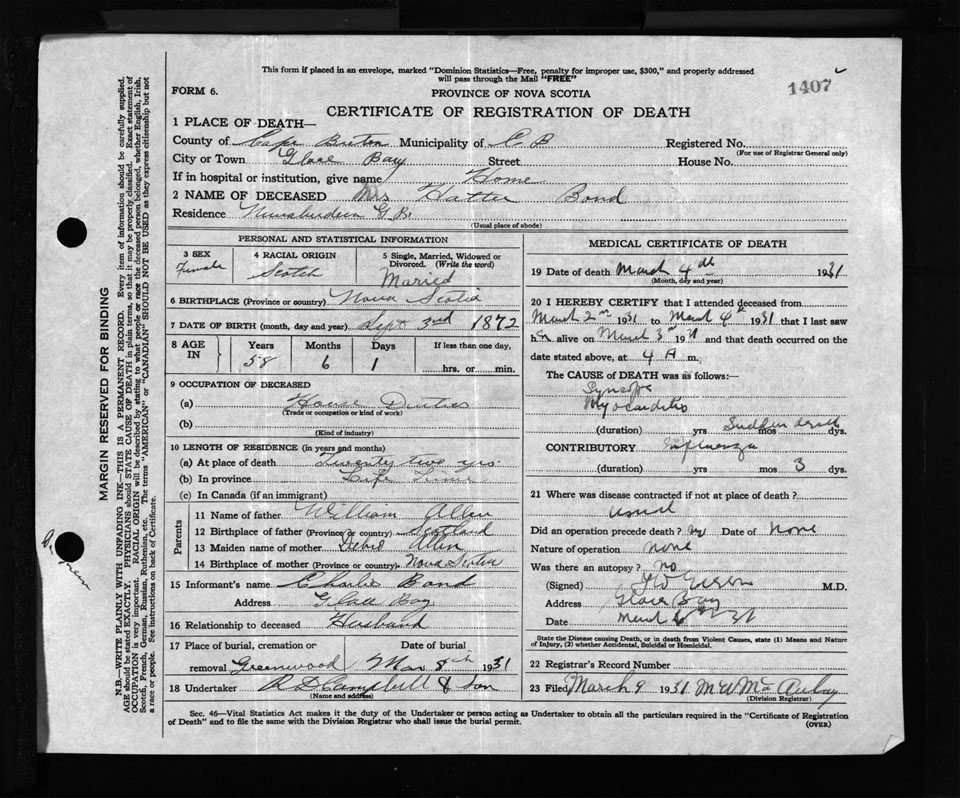 This form if placed in an envelope, marked "Dominion Statistics—Free, penalty for improper use, $300," and properly addressed
will pass through the Mail "FREE"
1407
FORM 6.
PROVINCE OF NOVA SCOTIA
CERTIFICATE OF REGISTRATION OF DEATH
1 PLACE OF DEATH—
County of Cape Breton Municipality of C B Registered No.
(For use of Registrar General only)
City or Town Glace Bay Street House No.
If in hospital or institution, give name Home
2 NAME OF DECEASED Mrs Bond
Residence Newaberdeen G. B.
(Usual place of abode)
PERSONAL AND STATISTICAL INFORMATION
3 SEX Female
4 RACIAL ORIGIN Scotch
5 Single, Married, Widowed or Divorced. (Write the word) Maried
6 BIRTHPLACE (Province or country) Nova Scotia
7 DATE OF BIRTH (month, day and year) Sept 3rd 1872
8 AGE IN Years Months Days If less than one day,
58 6 1 hrs. or min.
9 OCCUPATION OF DECEASED
(a) House Duties
(Trade or occupation or kind of work)
(b)
(Kind of industry)
10 LENGTH OF RESIDENCE (in years and months)
(a) At place of death Twenty two yrs.
(b) In province Life Time
(c) In Canada (if an immigrant)
Parents
11 Name of father William Allen
12 Birthplace of father (Province or country) Scotland
13 Maiden name of mother Allen
14 Birthplace of mother (Province or country) Nova Scotia
15 Informant's name Charlie Bond
Address Glace Bay
16 Relationship to deceased Husband
17 Place of burial, cremation or removal Greenwood Date of burial Mar 8th 1931
18 Undertaker R D Campbell & Son
(Name and address)
MEDICAL CERTIFICATE OF DEATH
19 Date of death March 4th 1931
(Month, day and year)
20 I HEREBY CERTIFY that I attended deceased from
March 2nd 1931 to March 4th 1931 that I last saw
her alive on March 3rd 1931 and that death occurred on the
date stated above, at 4 A m.
The CAUSE OF DEATH was as follows:—
Syncope
Myocarditis
(duration) yrs mos dys. Sudden death
CONTRIBUTORY Influenza
(duration) yrs mos 3 dys.
21 Where was disease contracted if not at place of death?
usual
Did an operation precede death? no Date of None
Nature of operation none
Was there an autopsy? no
(Signed) M.D.
Address Glace Bay
Date March 6th 31
State the Disease causing Death, or in death from Violent Causes, state (1) Means and Nature
of Injury, (2) whether Accidental, Suicidal or Homicidal.
22 Registrar's Record Number
23 Filed March 9 1931 McAulay
(Division Registrar)
Sec. 46—Vital Statistics Act makes it the duty of the Undertaker or person acting as Undertaker to obtain all the particulars required in the "Certificate of Registration
of Death" and to file the same with the Division Registrar who shall issue the burial permit.
(OVER)
MARGIN RESERVED FOR BINDING
N.B.—WRITE PLAINLY WITH UNFADING INK—THIS IS A PERMANENT RECORD. Every item of information should be carefully supplied.
AGE should be stated EXACTLY. PHYSICIANS should STATE CAUSE OF DEATH in plain terms, so that it may be properly classified. Exact statement of
OCCUPATION is very important. RACIAL ORIGIN will be described by stating to what people or race the deceased person belonged, whether English, Irish,
Scotch, French, German, Russian, Ruthenian, etc. The terms "AMERICAN" or "CANADIAN" SHOULD NOT BE USED as they express citizenship but not
a race or people. See instructions on back of Certificate.